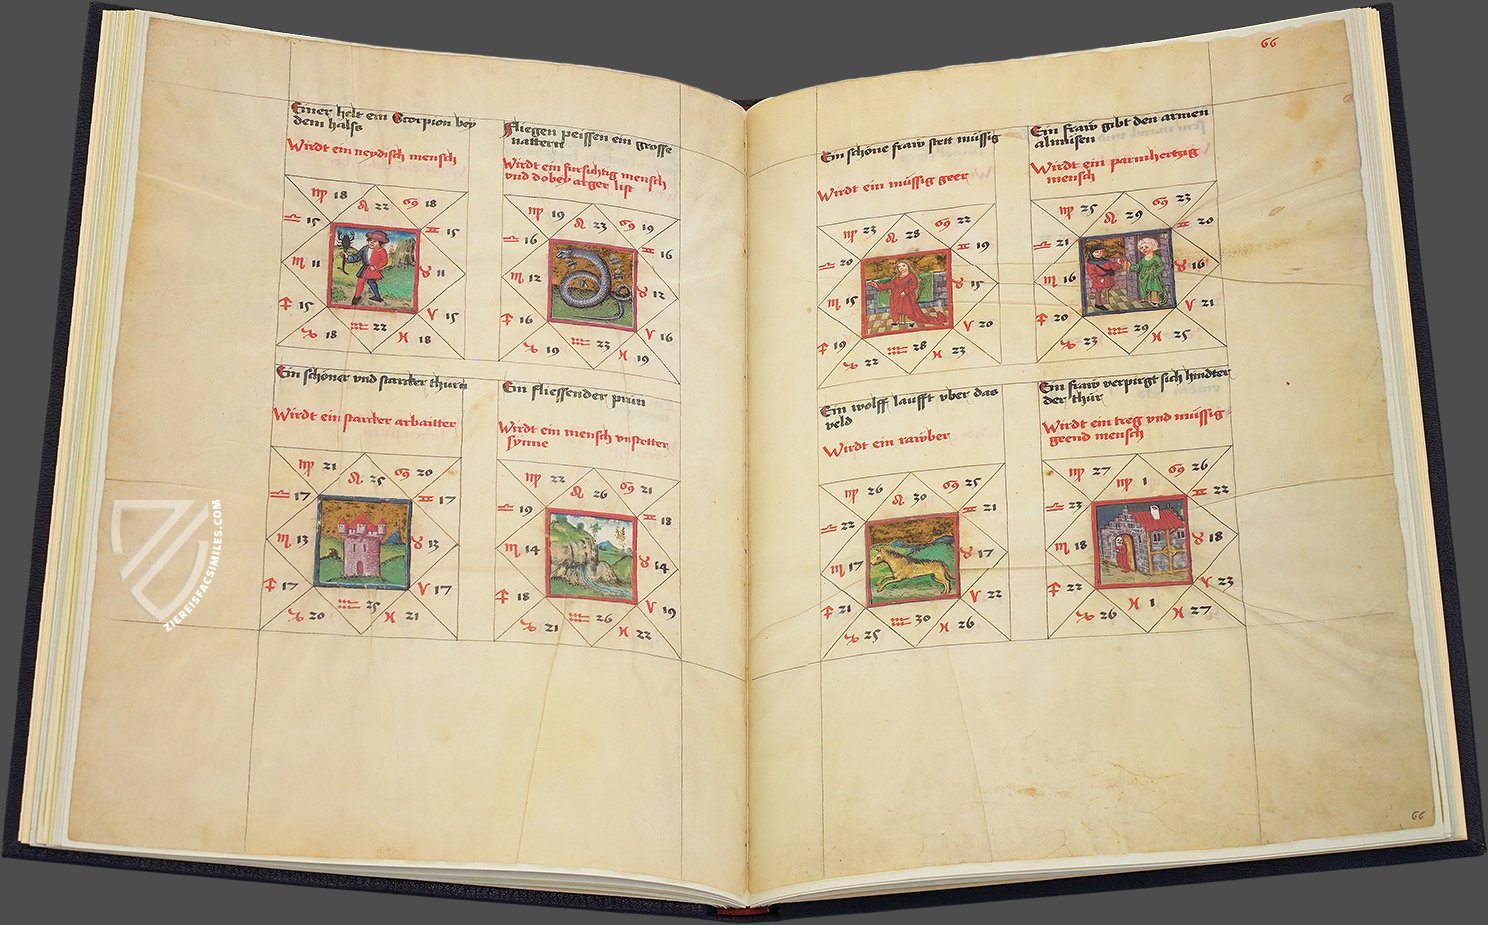 Einer helt ein Scorpion bey
dem halß
Wirdt ein neydisch mensch
♍ 18 ♌ 22 ♋ 18
♎ 15 ♊ 15
♏ 11 ♉ 11
♐ 15 ♈ 15
♑ 18 ♒ 22 ♓ 18
Fliegen peissen ein grosse
nattern
Wirdt ein fursichtig mensch
vnd dobey arger list
♍ 19 ♌ 23 ♋ 19
♎ 16 ♊ 16
♏ 12 ♉ 12
♐ 16 ♈ 16
♑ 19 ♒ 23 ♓ 19
Ein schöner vnd starcker thurn
Wirdt ein starcker arbaitter
♍ 21 ♌ 25 ♋ 20
♎ 17 ♊ 17
♏ 13 ♉ 13
♐ 17 ♈ 17
♑ 20 ♒ 25 ♓ 21
Ein fliessender prun
Wirdt ein mensch vnstetter
synne
♍ 22 ♌ 26 ♋ 21
♎ 19 ♊ 18
♏ 14 ♉ 14
♐ 18 ♈ 19
♑ 21 ♒ 26 ♓ 22
ZIEREISFACSIMILES.COM
66
Ein schöne fraw stett müssig
Wirdt ein müssig geer
♍ 23 ♌ 28 ♋ 22
♎ 20 ♊ 19
♏ 15 ♉ 15
♐ 19 ♈ 20
♑ 22 ♒ 28 ♓ 23
Ein fraw gibt den armen
almusen
Wirdt ein parmhertzig
mensch
♍ 25 ♌ 29 ♋ 23
♎ 21 ♊ 20
♏ 16 ♉ 16
♐ 20 ♈ 21
♑ 23 ♒ 29 ♓ 25
Ein wolff laufft vber das
veld
Wirdt ein rawber
♍ 26 ♌ 30 ♋ 25
♎ 22 ♊ 21
♏ 17 ♉ 17
♐ 21 ♈ 22
♑ 25 ♒ 30 ♓ 26
Ein fraw verpirgt sich hindter
der thür
Wirdt ein treg vnd müssig
geend mensch
♍ 27 ♍ 1 ♋ 26
♎ 23 ♊ 22
♏ 18 ♉ 18
♐ 22 ♈ 23
♑ 26 ♓ 1 ♓ 27
66